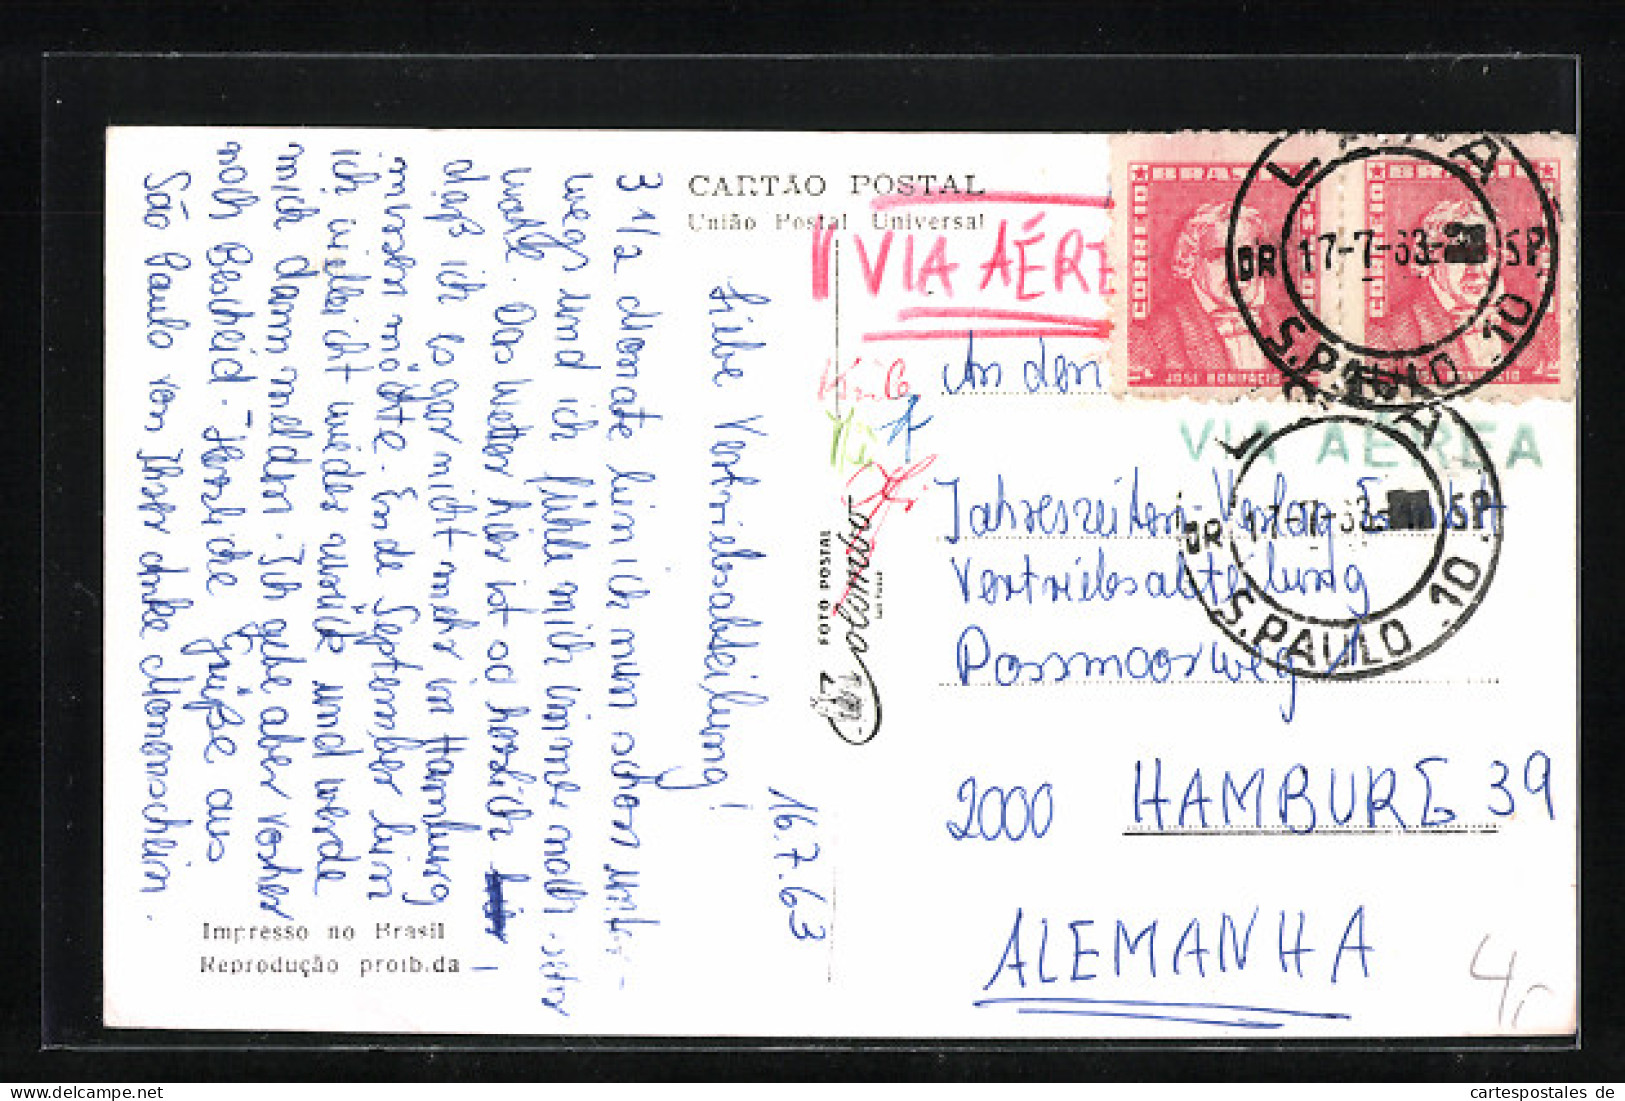 CARTÃO POSTAL
União Postal Universal
VIA AÉRE
BRASIL
CORREIO
JOSÉ BONIFACIO
BRASIL
CORREIO
LAPA
DR 17-7-63 SP
S. PAULO .10
VIA AÉREA
LAPA
DR 17-7-63 SP
S. PAULO .10
16.7.63
Liebe Vertriebsabteilung!
3 1/2 Monate bin ich nun schon unter-
wegs und ich fühle mich immer noch sehr
wohl. Das Wetter hier ist so herrlich
daß ich sogar nicht mehr in Hamburg
mich
ich vielleicht wieder zurück und werde
mich dann melden. Ich gebe aber vorher
noch Bescheid. Herzliche Grüße aus
São Paulo von Ihrer
An den
Jahreszeiten-Verlag GmbH
Vertriebsabteilung
Possmoorweg 1
2000 HAMBURG 39
ALEMANHA
FOTO POSTAL
Colombo
Impresso no Brasil
Reprodução proibida
4,-
cartespostales de